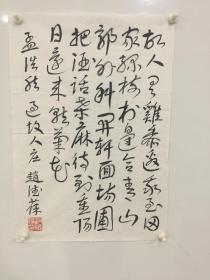 故人具雞黍邀我至田
家綠樹村邊合青山
郭外斜開軒面場圃
把酒話桑麻待到重陽
日還來就菊花
孟浩然過故人庄 趙